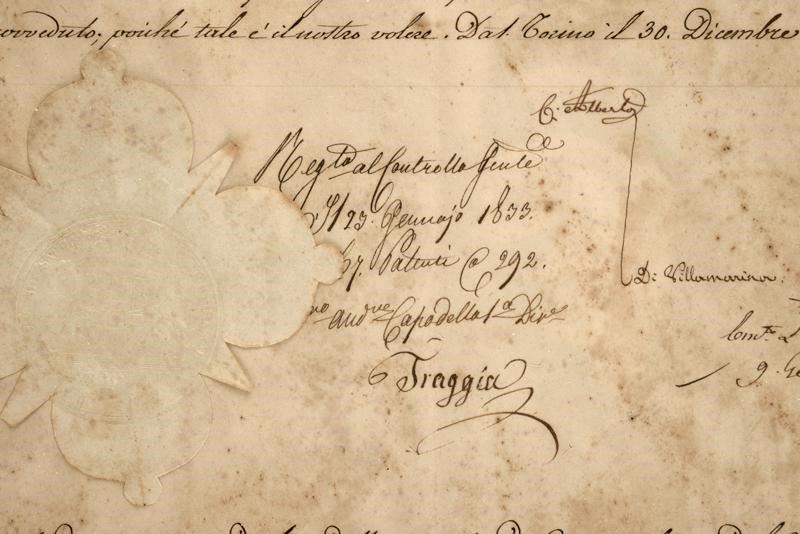 provveduto; poiché tale é il nostro volere. Dat. Torino il 30. Dicembre
C. Alberto
Regto al Controllo Genle
23. Gennajo 1833.
Patenti C 292.
Capo della 1a Dive
Traggia
Di Villamarina.
9.